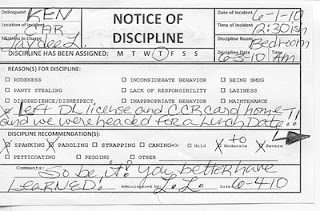 Delinquent KEN
Location of Incident CAR
Mistress in Charge Jaydee L
NOTICE OF
DISCIPLINE
Date of Incident 6-1-10
Time of Incident 12:30ish
Discipline Location Bedroom
Discipline Date 6-3-10 AM
DISCIPLINE HAS BEEN ASSIGNED: M T W T F S S
REASON(S) FOR DISCIPLINE:
RUDENESS INCONSIDERATE BEHAVIOR BEING SMUG
PANTY STEALING LACK OF RESPONSIBILITY LAZINESS
DISOBEDIENCE/DISRESPECT INAPPROPRIATE BEHAVIOR MAINTENANCE
X Left DL license and CCR card home
and we were headed for a Lunch Date!!
DISCIPLINE RECOMMENDATION(S):
X SPANKING X PADDLING STRAPPING CANING=> Mild X Moderate to X Severe
PETTICOATING PEGGING OTHER
Comments: So be it! You better have
LEARNED! Administered by: J. L. Date 6-4-10